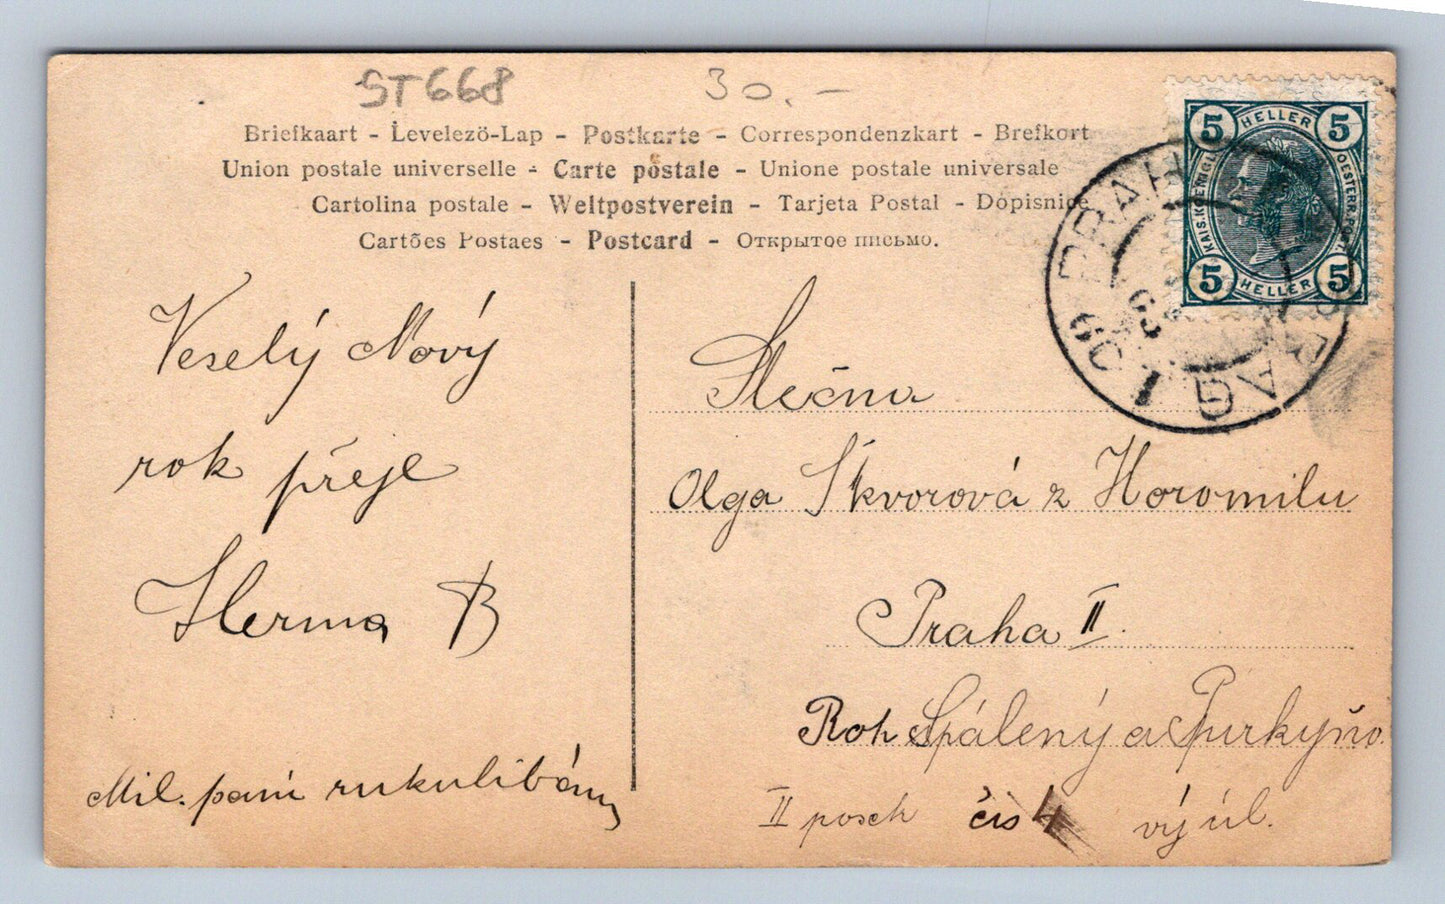 ST668 30.-
Briefkaart - Levelezö-Lap - Postkarte - Correspondenzkart - Brefkort
Union postale universelle - Carte postale - Unione postale universale
Cartolina postale - Weltpostverein - Tarjeta Postal - Dopisnice
Cartões Postaes - Postcard - Открытое письмо.
5 HELLER 5
KAIS. KOENIGL. OESTERR. POST.
5 HELLER 5
PRAHA
PRAG 1
Veselý Nový
rok přeje
Herma B
Mil. paní rukulibám
Slečna
Olga Škvorová z Horomilu
Praha II.
Roh Spálený a Purkyňo
II posch čís 4 vý úl.